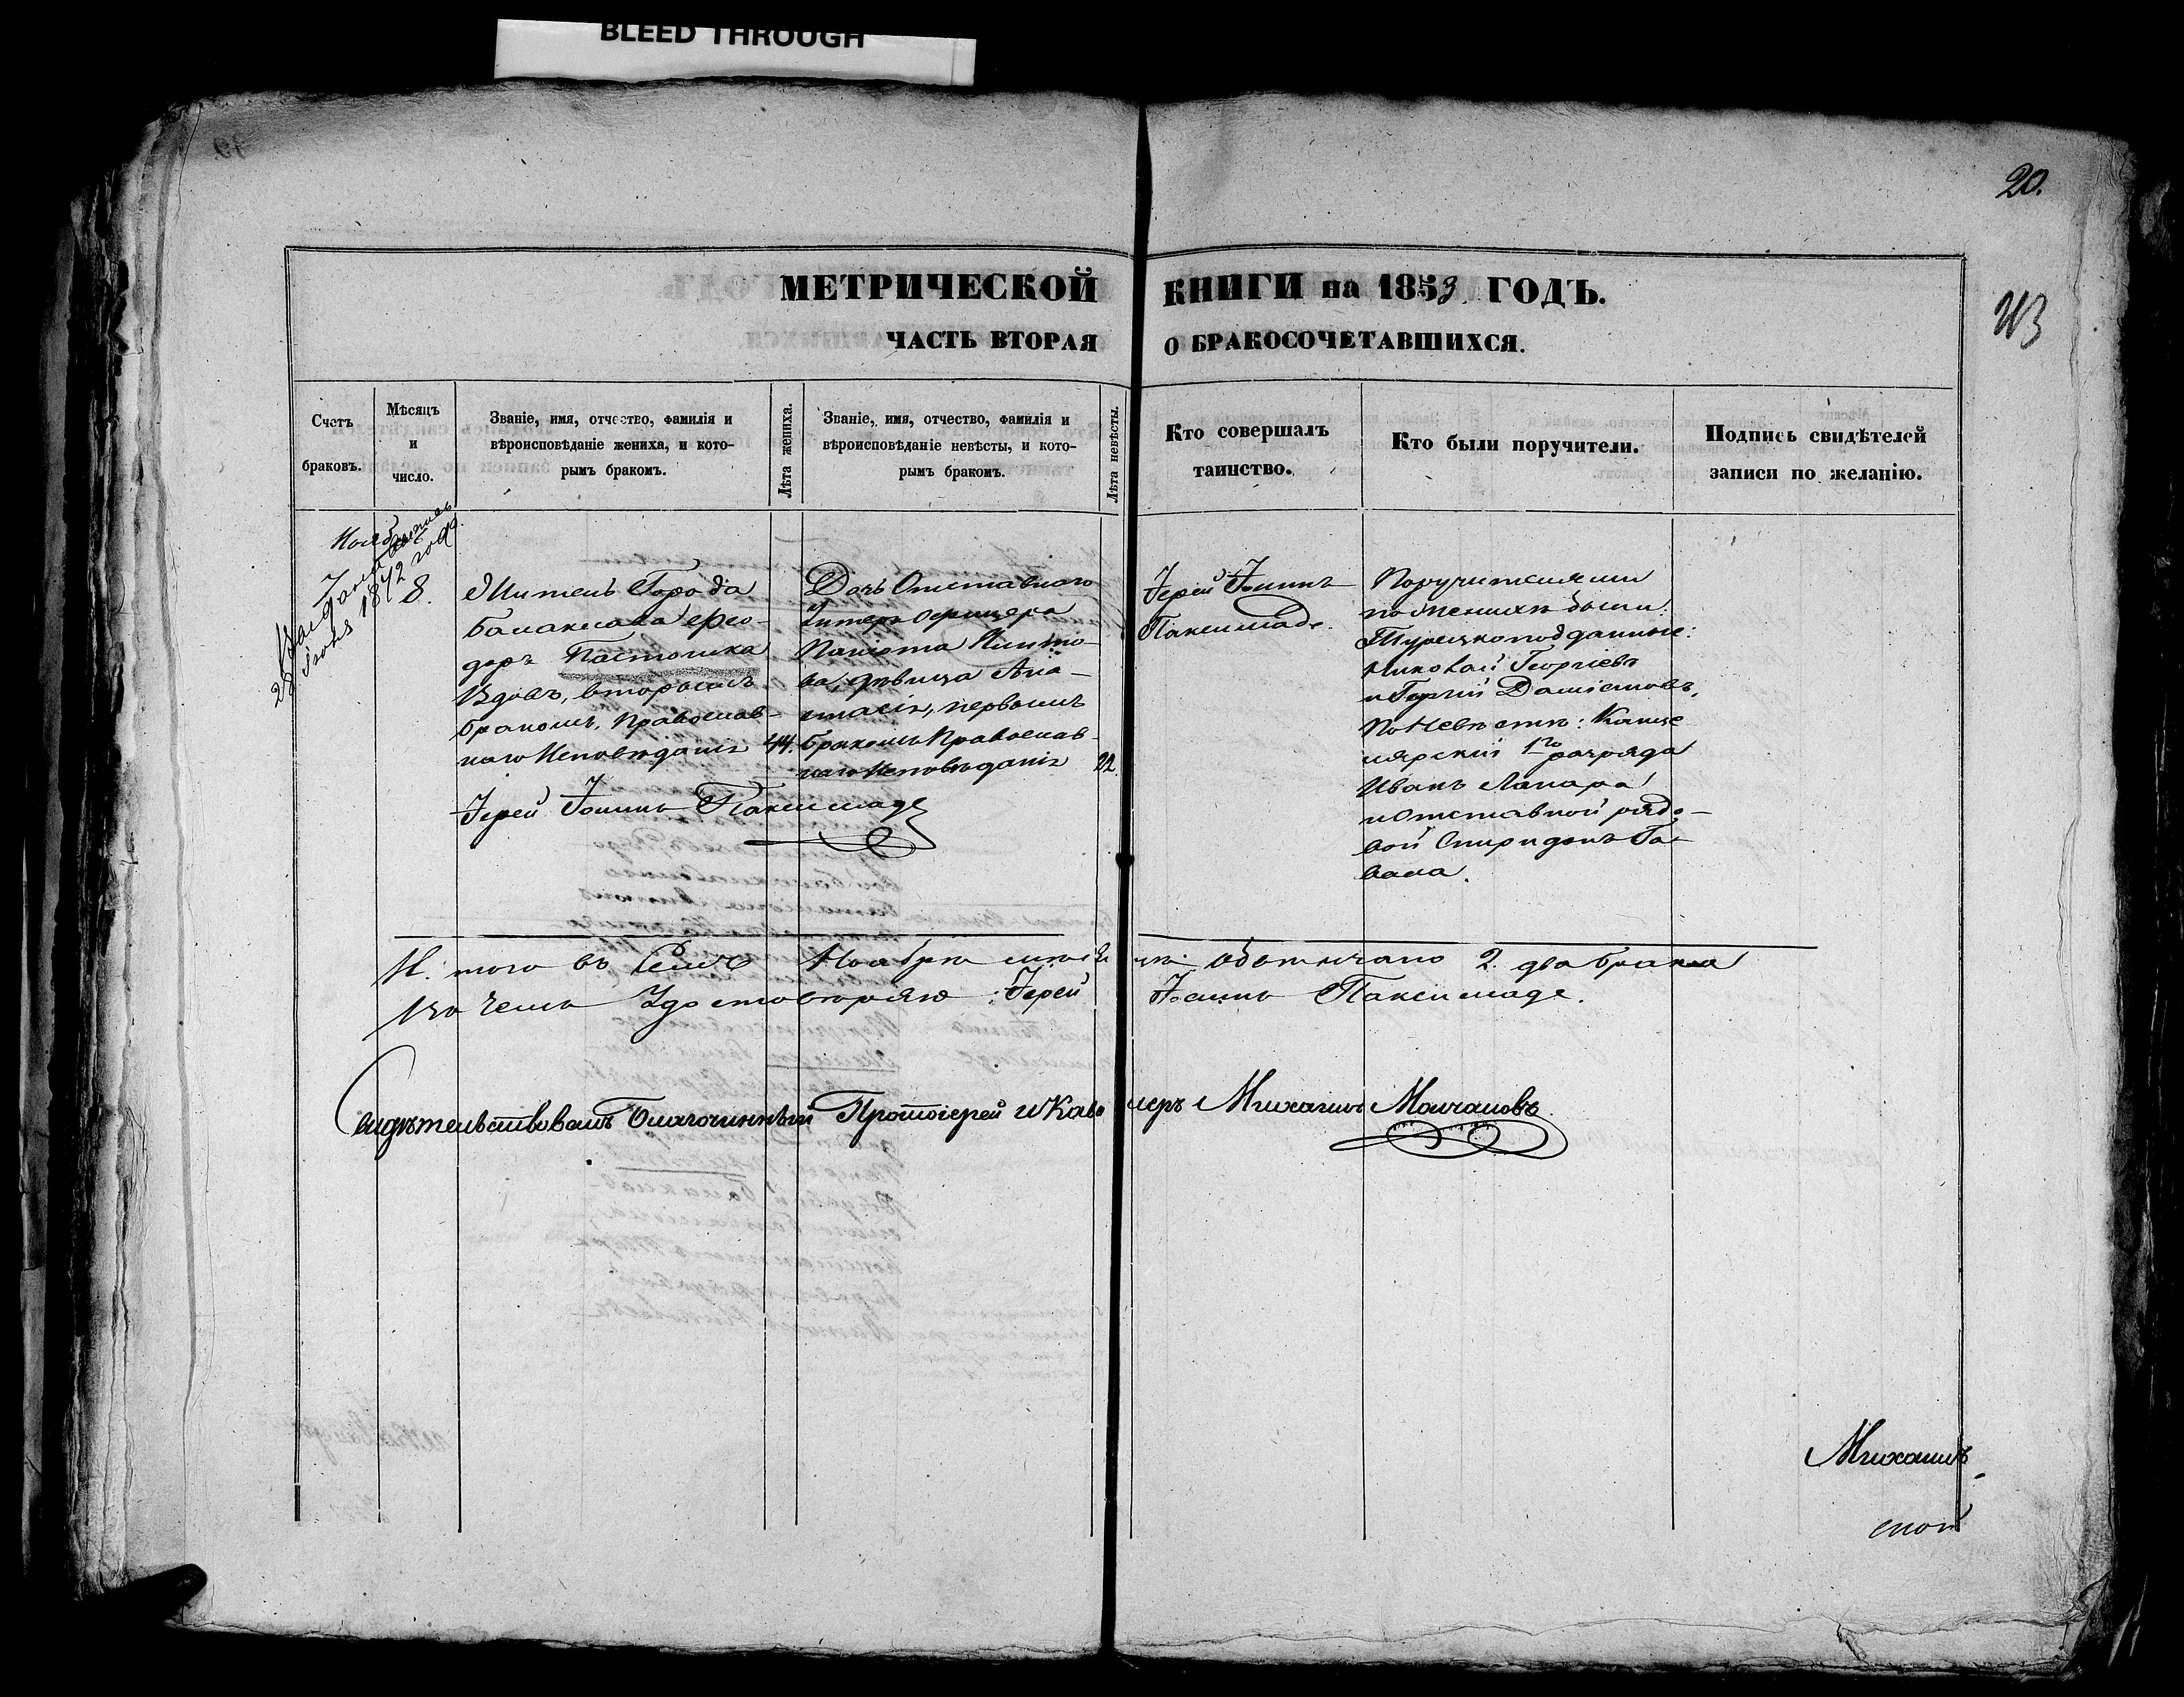 BLEED THROUGH
20.
МЕТРИЧЕСКОЙ КНИГИ на 1853 ГОДЪ.
ЧАСТЬ ВТОРАЯ О БРАКОСОЧЕТАВШИХСЯ.
Счетъ
браковъ.
Мѣсяцъ
и
число.
Званіе, имя, отчество, фамилія и
вѣроисповѣданіе жениха, и кото-
рымъ бракомъ.
Лѣта жениха.
Званіе, имя, отчество, фамилія и
вѣроисповѣданіе невѣсты, и кото-
рымъ бракомъ.
Лѣта невѣсты.
Кто совершалъ
таинство.
Кто были поручители.
Подпись свидѣтелей
записи по желанію.
Ноябрь
1872 года
8.
Житель Города
Балаклава Ѳео-
доръ
Вдовъ, вторымъ
бракомъ, православ-
наго Исповѣданія
44.
Дочь Отставнаго
Унтеръ офицера
Паніота
ва, дѣвица Ана-
стасія, первымъ
бракомъ Православ-
наго Исповѣданія
22.
Іерей Іоаннъ
Паксимаде.
Поручителями
по Женихѣ были
Турецкоподданные:
Николай Георгіевъ
и Георгій
По Невѣстѣ: Канце
лярскій 1го разряда
Иванъ Лапара
и Отставной рядо-
вой Спиридонъ Га-
вала.
Іерей Іоаннъ Паксимаде
И того въ Семъ Ноябрѣ мѣсяцѣ обвѣнчано 2. два брака
Въ чемъ Удостовѣряю: Іерей Іоаннъ Паксимаде.
Свидѣтельствовалъ Благочинный Протоіерей и Кавалеръ Михаилъ Молчановъ
Михаилъ